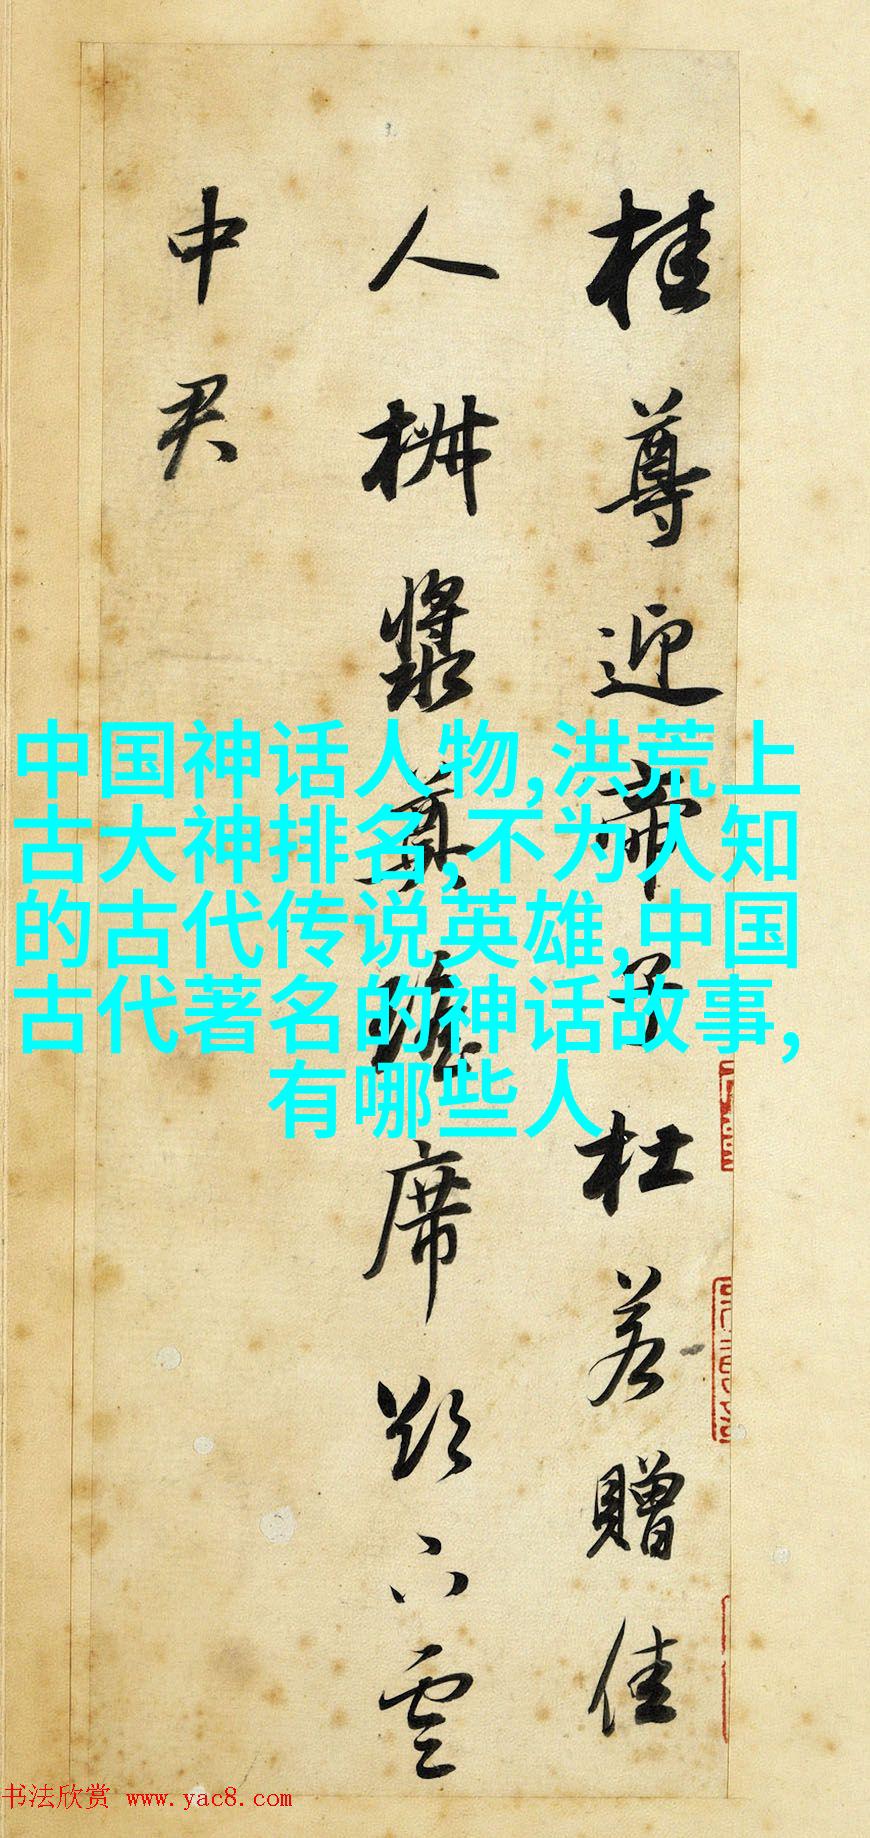 桂尊迎帝子杜若贈佳
人椒漿奠瑤席欲下雲
中君
中国神话人物,洪荒上
古大神排名,不为人知
的古代传说英雄,中国
古代著名的神话故事,
有哪些人
书法欣赏 www.yac8.com